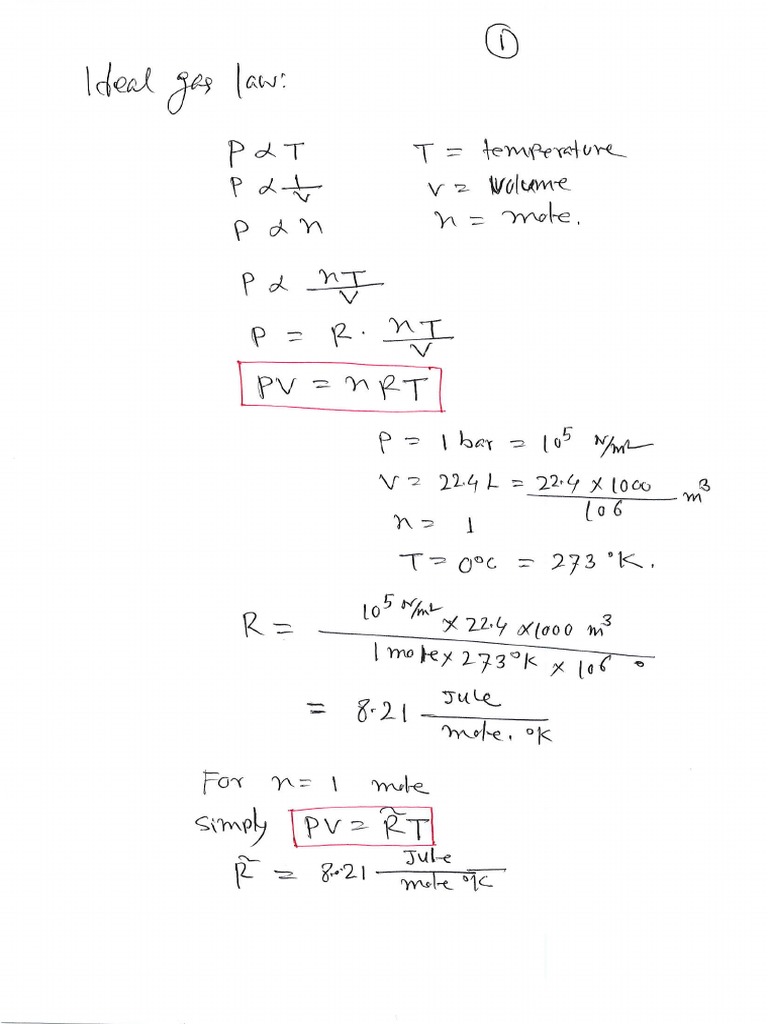 ①
Ideal gas law:
P ∝ T T = temperature
P ∝ 1/V V = Volume
P ∝ n n = mole.
P ∝ nT/V
P = R · nT/V
PV = nRT
P = 1 bar = 10⁵ N/m²
V = 22.4 L = 22.4 × 1000/10⁶ m³
n = 1
T = 0°C = 273 °K.
R = 10⁵ N/m² × 22.4 × 1000 m³ / 1 mole × 273°K × 10⁶
= 8.21 Jule/mole. °K
For n = 1 mole
simply PV = R̃T
R̃ = 8.21 Jule/mole °K